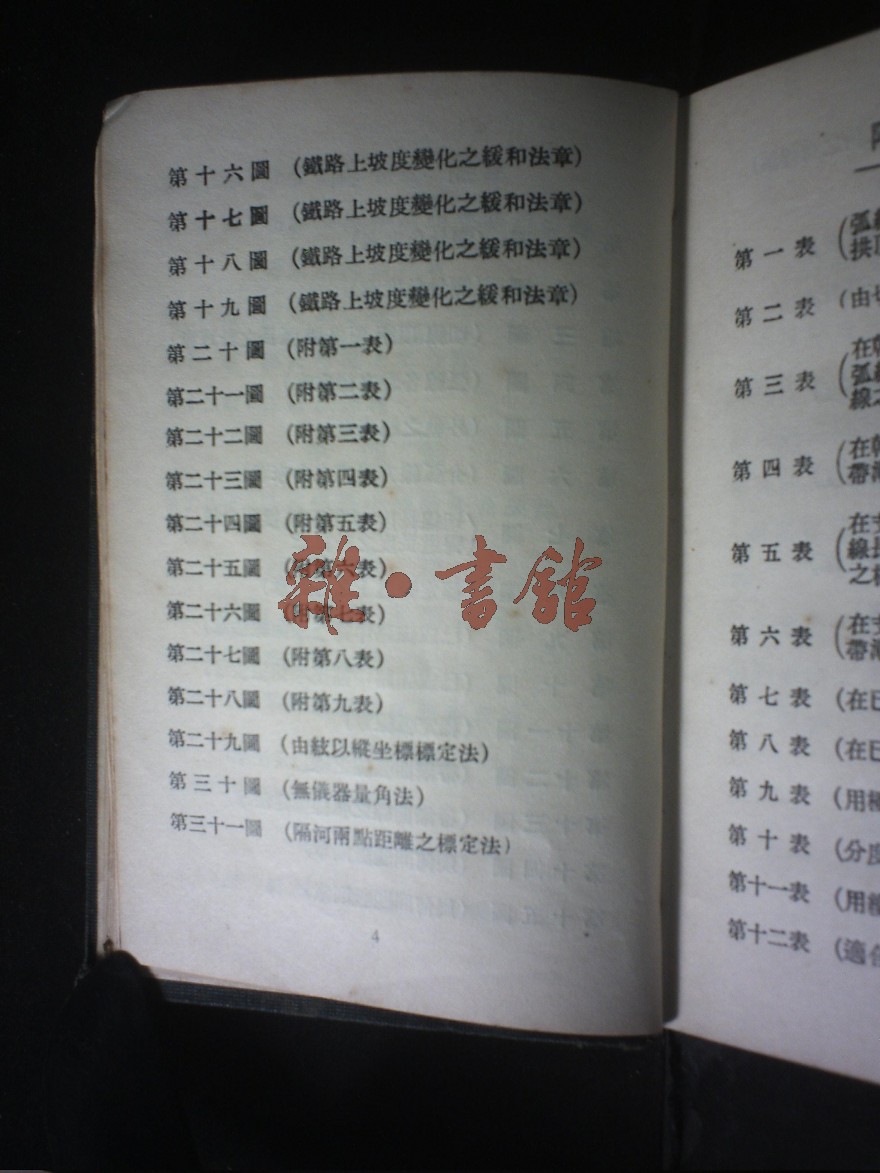 第十六圖 (鐵路上坡度變化之緩和法章)
第十七圖 (鐵路上坡度變化之緩和法章)
第十八圖 (鐵路上坡度變化之緩和法章)
第十九圖 (鐵路上坡度變化之緩和法章)
第二十圖 (附第一表)
第二十一圖 (附第二表)
第二十二圖 (附第三表)
第二十三圖 (附第四表)
第二十四圖 (附第五表)
第二十五圖 (附第六表)
第二十六圖 (附第七表)
第二十七圖 (附第八表)
第二十八圖 (附第九表)
第二十九圖 (由紋以縱坐標標定法)
第三十圖 (無儀器量角法)
第三十一圖 (隔河兩點距離之標定法)
4
雜·書館
第一表 (弧
拱
第二表 (由
第三表 (在
弧
線之
第四表 (在
帶
第五表 (在
線長
之
第六表 (在
帶
第七表 (在已
第八表 (在已
第九表 (用
第十表 (分度
第十一表 (用
第十二表 (適合